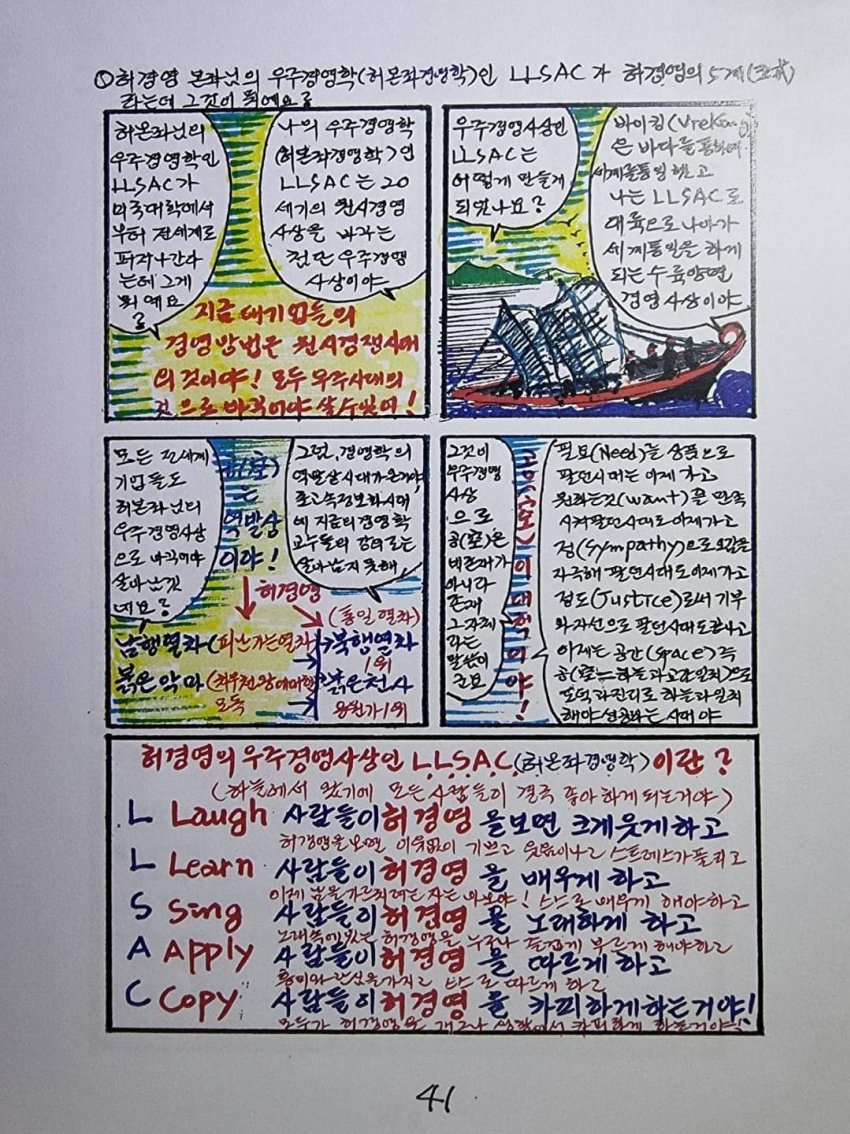 ①허경영 본좌님의 우주경영학(허본좌경영학)인 LLSAC가 허경영의 5계(五戒)
라는데 그것이 뭐에요?
허본좌님의
우주경영학인
LLSAC가
미국대학에서
부터 전세계로
퍼져나간다
는데 그게
뭐에요
?
나의 우주경영학
(허본좌경영학)인
LLSAC는 20
세기의 원시경영
사상을 바꾸는
첨단 우주경영
사상이야
지금 대기업들의
경영방법은 원시경쟁시대
의 것이야! 모두 우주시대의
것으로 바뀌어야 살수있어!
우주경영사상인
LLSAC는
어떻게 만들게
되었나요?
바이킹
은 바다를 통하여
세계를통일했고
나는 LLSAC로
대륙으로나아가
세계통일을 하게
되는 수륙양면
경영사상이야
모든 전세계
기업들도
허본좌님의
우주경영사상
으로 바뀌어야
살아남겠
네요?
는
역발상
이야!
그럼, 경영학의
역발상시대가온거야
초고속정보화시대
에 지금의경영학
교수들의 강의로는
살아남지못해
허경영
(통일열차)
남행열차(피난가는열차)→북행열차
1위
붉은악마
붉은천사
응원가1위
그것이
우주경영
사상
으로
공(空)은
비존재가
아니라
존재
그자체
라는
말씀이
군요
이야!
필요(Need)를 상품으로
팔던시대는 이제 가고
원하는것(want)을 만족
시켜팔던시대도이제가고
정(Sympathy)으로오감을
자극해 팔던시대도이제가고
정도(Justice)로서 기부
와자선으로 팔던시대도끝나고
이제는 공간(Space) 즉
공(空=하늘과고간일치)으로
도덕과진리로 하늘과일치
해야 성공하는 시대야
허경영의 우주경영사상인 L.L.S.A.C.(허본좌경영학)이란?
(하늘에서 왔기에 모든 사람들이 결국 좋아하게 되는거야)
L Laugh 사람들이허경영을보면 크게웃게하고
허경영을보면 이유없이 기쁘고 웃음이나고 스트레스가풀리고
L Learn 사람들이허경영을 배우게 하고
이제 남을가르치려는 자는 바보야! 스스로 배우게 해야하고
S Sing 사람들이허경영을 노래하게 하고
노래속에있는 허경영을 누구나 즐겁게 부르게 해야하고
A Apply 사람들이허경영을 따르게하고
흥미와관심을가지고 스스로 따르게 하고
C Copy 사람들이허경영을 카피하게하는거야!
모두가 허경영을 카피하게 하는거야!
41